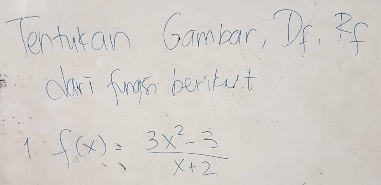 Tentukan Gambar, Df, Rf
dari fungsi berikut
1. f(x) = 3x² - 3 / x + 2